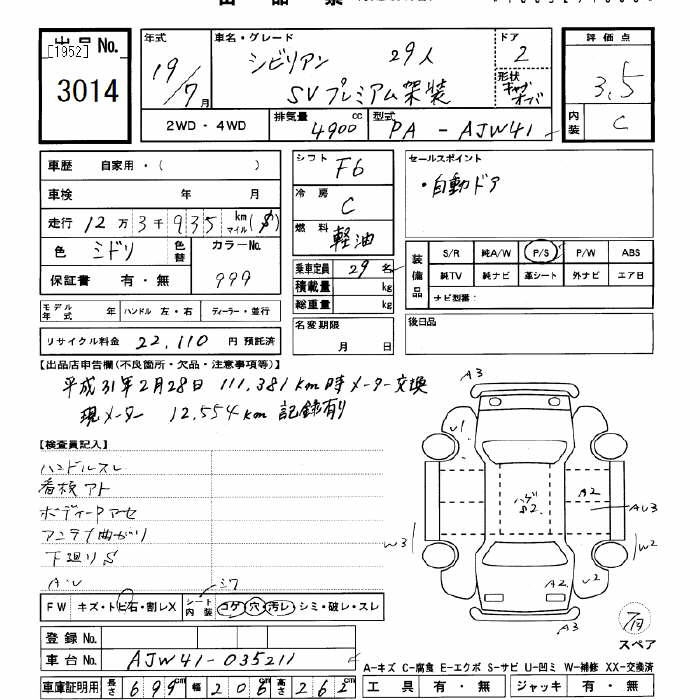 出品票
出品No.
[1952]
3014
年式
19/7月
車名・グレード
シビリアン 29人
SVプレミアム架装
ドア
2
形状
キャブオーバ
評価点
3.5
内装
C
2WD・4WD
排気量
4900 cc
型式
PA-AJW41
車歴 自家用・( )
車検 年 月
走行 12万3千935 km マイル($)
色 ミドリ 色替 カラーNo. 999
保証書 有・無
シフト F6
冷房 C
燃料 軽油
乗車定員 29名
積載量 kg
総重量 kg
セールスポイント
・自動ドア
装備品
S/R 純A/W P/S P/W ABS
純TV 純ナビ 革シート 外ナビ エア日
ナビ型番:
モデル年式 年 ハンドル 左・右 ディーラー・並行
リサイクル料金 22,110 円 預託済
名変期限
月 日
後日品
【出品店申告欄(不良箇所・欠品・注意事項等)】
平成31年2月28日 111,381km時メーター交換
現メーター 12,554km 記録有り
【検査員記入】
ハンドルスレ
看板アト
ボディーPアセ
アンテナ曲がり
下廻りS
A・U
シワ
FW キズ・トビ石・割レX シート内装 コゲ・穴・汚レ・シミ・破レ・スレ
登録No.
車台No. AJW41-035211
車庫証明用 長さ 699cm 幅 206cm 高さ 262cm
A3
U1
ハゲ
A2
A2
AU3
W3
W2
A2
U2
A3
スペア
A-キズ C-腐食 E-エクボ S-サビ U-凹ミ W-補修 XX-交換済
工具 有・無 ジャッキ 有・無